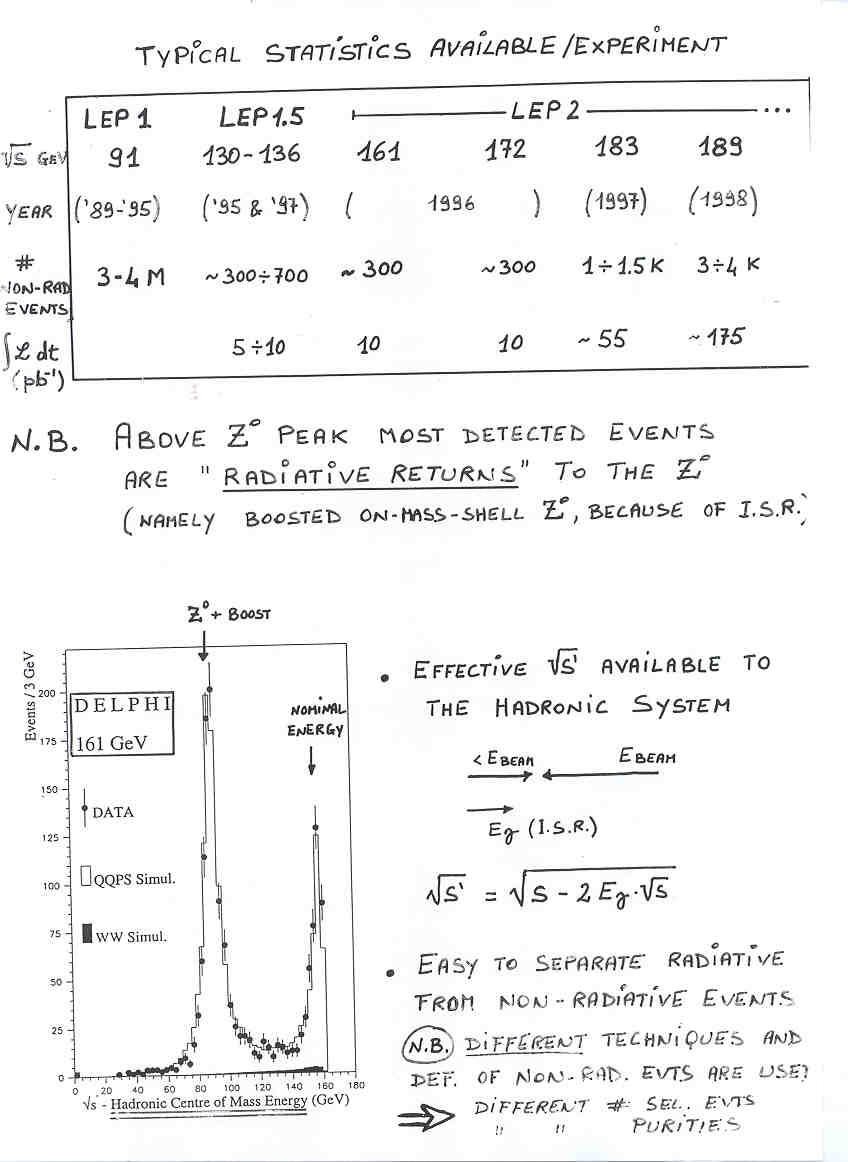 TYPICAL STATISTICS AVAILABLE/EXPERIMENT
LEP 1 LEP 1.5 LEP 2 ...
√s GEV 91 130-136 161 172 183 189
YEAR ('89-'95) ('95 & '97) ( 1996 ) (1997) (1998)
#
NON-RAD
EVENTS 3-4 M ~300÷700 ~300 ~300 1÷1.5K 3÷4 K
∫ℒ dt
(pb⁻¹) 5÷10 10 10 ~55 ~175
N.B. ABOVE Z⁰ PEAK MOST DETECTED EVENTS
ARE "RADIATIVE RETURNS" TO THE Z⁰
(NAMELY BOOSTED ON-MASS-SHELL Z⁰, BECAUSE OF I.S.R.)
Z⁰ + BOOST
Events / 3 GeV
200
175
150
125
100
75
50
25
0
DELPHI
161 GeV
NOMINAL
ENERGY
DATA
QQPS Simul.
WW Simul.
0 20 40 60 80 100 120 140 160 180
√s' - Hadronic Centre of Mass Energy (GeV)
• EFFECTIVE √s' AVAILABLE TO
THE HADRONIC SYSTEM
< EBEAM EBEAM
Eγ (I.S.R.)
√s' = √s - 2 Eγ·√s
• EASY TO SEPARATE RADIATIVE
FROM NON-RADIATIVE EVENTS
N.B. DIFFERENT TECHNIQUES AND
DEF. OF NON-RAD. EVTS ARE USE
⇒ DIFFERENT # SEL. EVTS
" " PURITIES